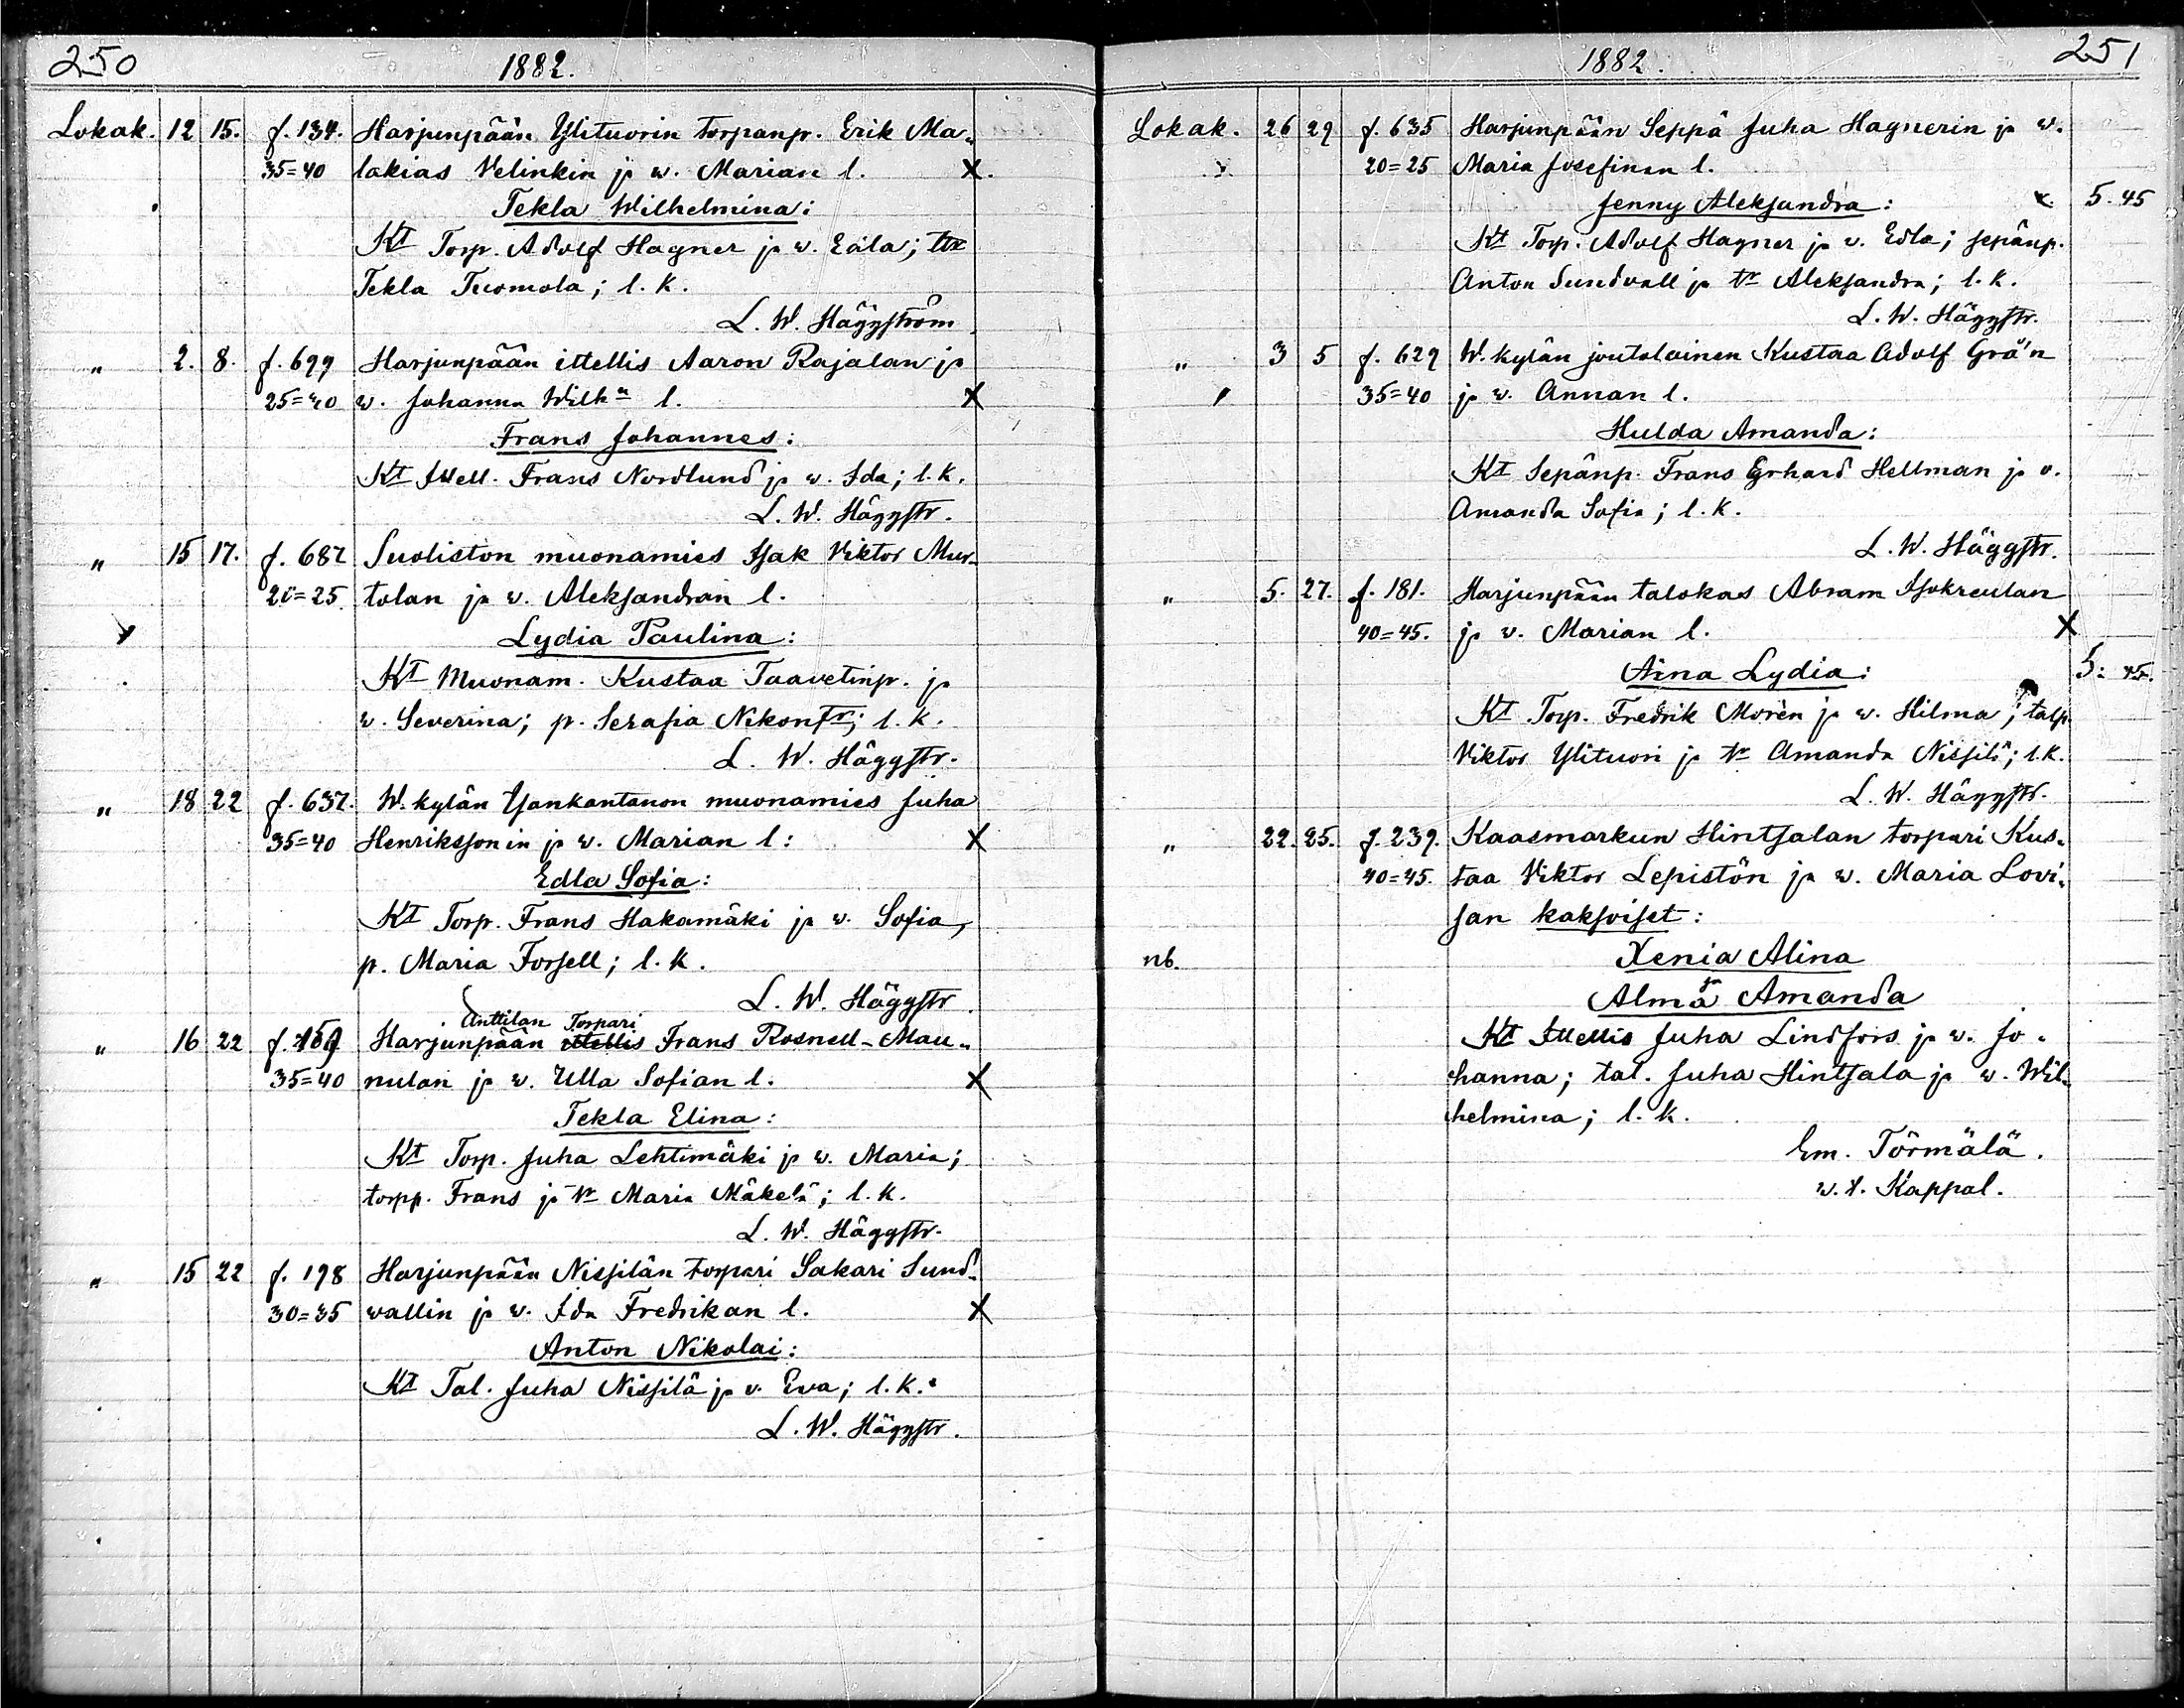 250
1882.
Lokak. 12 15. f. 134. Harjunpään Ylituorin torpanp. Erik Ma-
35=40 lakias Velinkin ja w. Marian l. X.
Tekla Wilhelmina:
Kt Torp. Adolf Hagner ja w. Edla; tr
Tekla Tuomola; l. k.
L. W. Häggström
" 2. 8. f. 699 Harjunpään ittellis Aaron Rajalan ja
25=40 w. Johanna Wilhn l. X
Frans Johannes:
Kt Ittell. Frans Nordlund ja w. Ida; l. k.
L. W. Häggstr.
" 15 17. f. 687 Suoliston muonamies Isak Viktor Mur-
20=25. tolan ja w. Aleksandran l.
Lydia Paulina:
Kt Muonam. Kustaa Taavetinp. ja
w. Severina; p. Serafia Nikontr; l. k.
L. W. Häggstr.
" 18 22 f. 637. W. kylän Yjankantanon muonamies Juha
35=40 Henrikssonin ja w. Marian l: X
Edla Sofia:
Kt Torp. Frans Hakamäki ja w. Sofia,
p. Maria Forsell; l. k.
L. W. Häggstr.
Anttilan Torpari
" 16 22 f. 159 Harjunpään ittellis Frans Rosnell-Mau-
35=40 nulan ja w. Ulla Sofian l. X
Tekla Elina:
Kt Torp. Juha Lehtimäki ja w. Maria;
torpp. Frans ja tr Maria Mäkelä; l. k.
L. W. Häggstr.
" 15 22 f. 198 Harjunpään Nissilän torpari Sakari Sund-
30=35 wallin ja w. Ida Fredrikan l. X
Anton Nikolai:
Kt Tal. Juha Nissilä ja v. Eva; l. k.
L. W. Häggstr.
1882.
251
Lokak. 26 29 f. 635 Harjunpään Seppä Juha Hagnerin ja w.
20=25 Maria Josefinan l.
Jenny Aleksandra: x. 5. 45
Kt Torp. Adolf Hagner ja v. Edla; sepänp.
Anton Sundvall ja tr Aleksandra; l. k.
L. W. Häggstr.
" 3 5 f. 629 W. kylän joutolainen Kustaa Adolf Grä'n
35=40 ja w. Annan l.
Hulda Amanda:
Kt Sepänp. Frans Erhard Hellman ja v.
Amanda Sofia; l. k.
L. W. Häggstr.
" 5. 27. f. 181. Harjunpään talokas Abram Isokreulan
40=45. ja v. Marian l. X
Aina Lydia: 5: 45.
Kt Torp. Fredrik Morèn ja w. Hilma; talp.
Viktor Ylituori ja tr Amanda Nissilä; l. k.
L. W. Häggstr.
" 22. 25. f. 239. Kaasmarkun Hintsalan torpari Kus-
40=45. taa Viktor Lepistön ja w. Maria Lovi-
san kaksoiset:
nb. Xenia Alina
ja
Alma Amanda
Kt Ittellis Juha Lindfors ja w. Jo-
hanna; tal. Juha Hintsala ja w. Wil-
helmina; l. k.
Em. Törmälä.
v. t. Kappal.